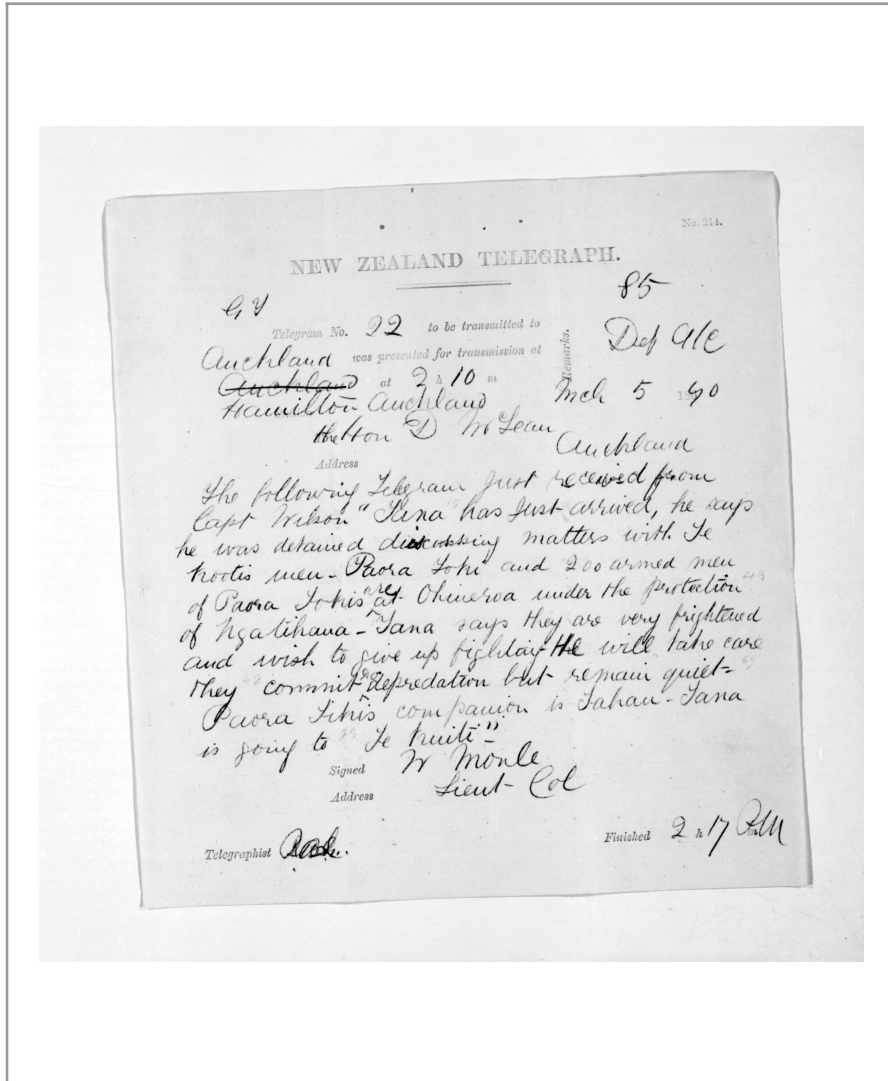 No. 214.
NEW ZEALAND TELEGRAPH.
85
Telegram No. 22 to be transmitted to
Remarks.
Def A/C
Auckland was presented for transmission at
Auckland at 2 h 10 m
Hamilton Auckland Mch 5 1870
the Hon D McLean
Auckland
Address
The following Telegram Just received from
Capt Wilson "Tana" has Just arrived, he says
he was detained discussing matters with Te
Kootis men - Paora Toki and 200 armed men
of Paora Tokis are at Ohineroa under the protection
of Ngatihaua - Tana says they are very frightened
and wish to give up fighting He will take care
they commit no depredation but remain quiet -
Paora Tikis companion is Tahau - Tana
is going to Te Kuiti" -
Signed W Moule
Address Lieut - Col
Telegraphist
Finished 2 h 17 P.M